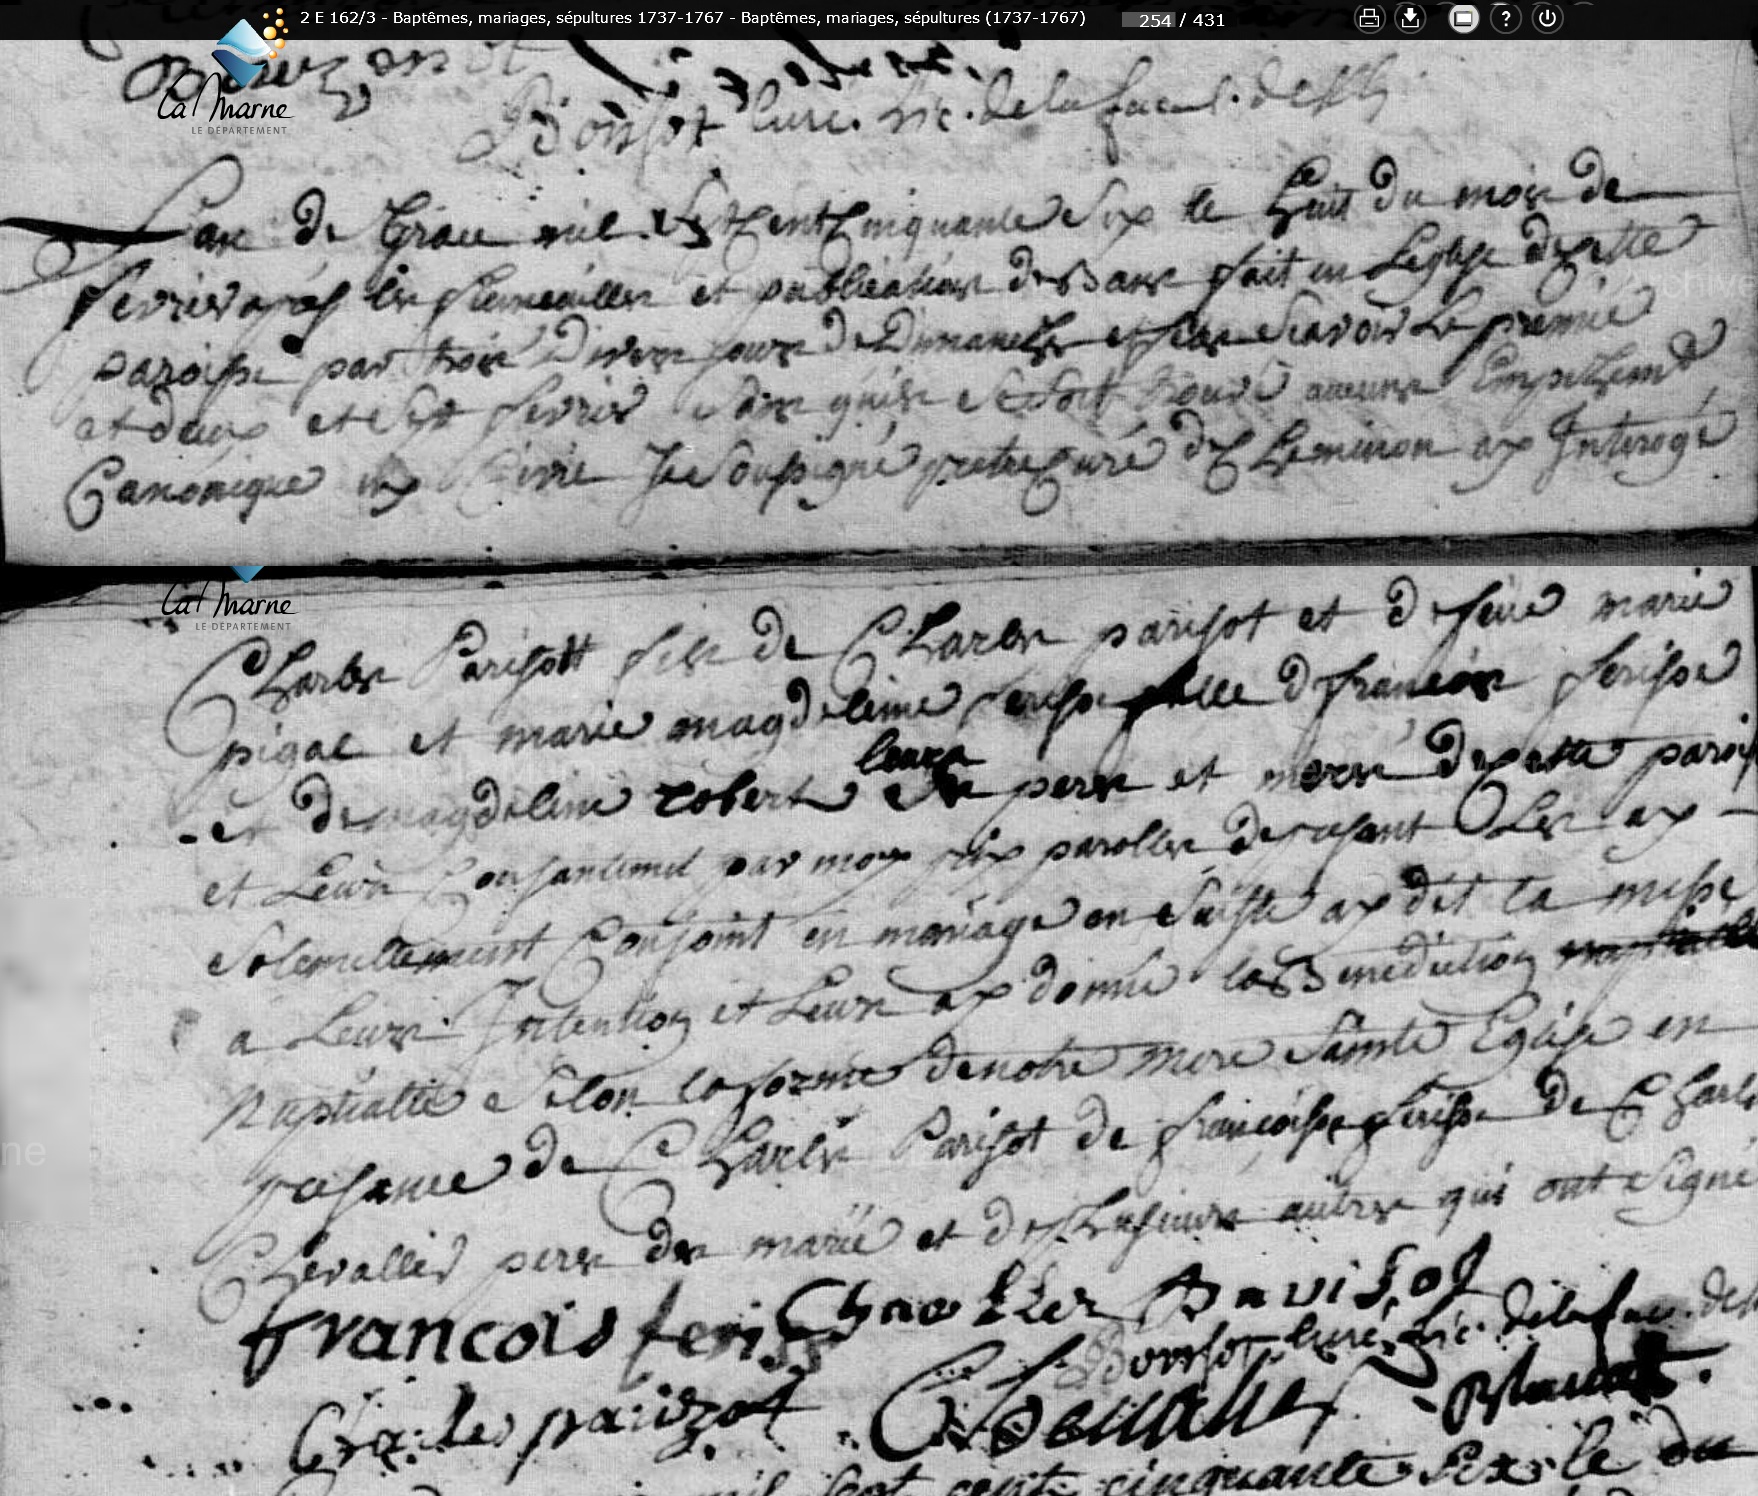 2 E 162/3 - Baptêmes, mariages, sépultures 1737-1767 - Baptêmes, mariages, sépultures (1737-1767) 254 / 431
La Marne
LE DÉPARTEMENT
Bonsot curé. de la
Lan de Grace mil Sept Cent Cinquante Six le huit du mois de
fevrier apres les fiancailles et publications des Bans fait en Leglise de cette
paroisse par trois Divers jours de Dimanches et festes Scavoir Le premié
et deux et Sept fevrié Sans quil se Soit trouvé aucuns Empechemt
Canonique ny Civil Je Soussigné pretre Curé de Cheminon ay Interogé
La Marne
LE DÉPARTEMENT
Charles Parisott fils de Charles parisot et de feüe marie
pigal et marie magdeleine ferisse fille de francois ferisse
et de magdeleine robert leurs peres et meres de cette paroisse
et Leurs Consantement par moy pris parolles de presant Les ay
Solemellement Conjoint en mariage en Suitte ay dit la messe
a Leurs Intention et Leurs ay donné la Benediction
Nuptialle Selon la forme de notre mere Sainte Eglise en
presance de Charles Parisot de francoisse ferisse de Charles
Chevallier peres des marié et de plusieurs autres qui ont Signé
francois feriss Charles Parisot
Bonsot curé de la fac.
Charles parizot
mil sept cent cinquante Six le du